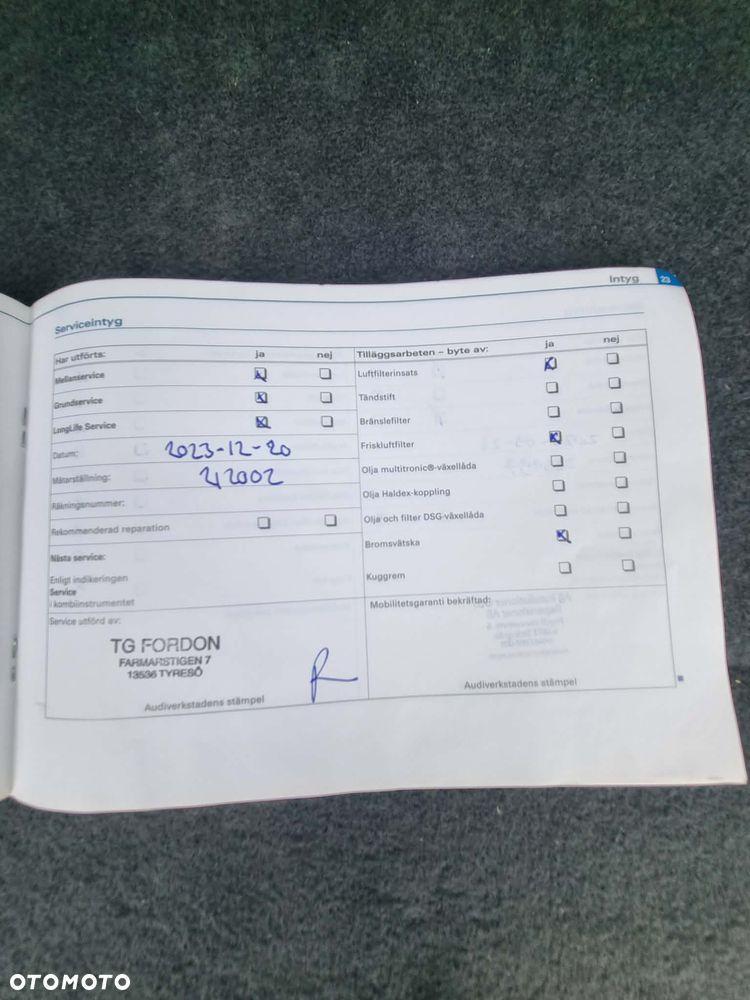 Intyg 23
Serviceintyg
Har utförts: ja nej
Mellanservice
Grundservice
LongLife Service
Datum: 2023-12-20
Mätarställning: 242002
Räkningsnummer:
Rekommenderad reparation
Nästa service:
Enligt indikeringen
Service
i kombiinstrumentet
Service utförd av:
TG FORDON
FARMARSTIGEN 7
13536 TYRESÖ
Audiverkstadens stämpel
Tilläggsarbeten – byte av: ja nej
Luftfilterinsats
Tändstift
Bränslefilter
Friskluftfilter
Olja multitronic®-växellåda
Olja Haldex-koppling
Olja och filter DSG-växellåda
Bromsvätska
Kuggrem
Mobilitetsgaranti bekräftad:
Audiverkstadens stämpel
OTOMOTO